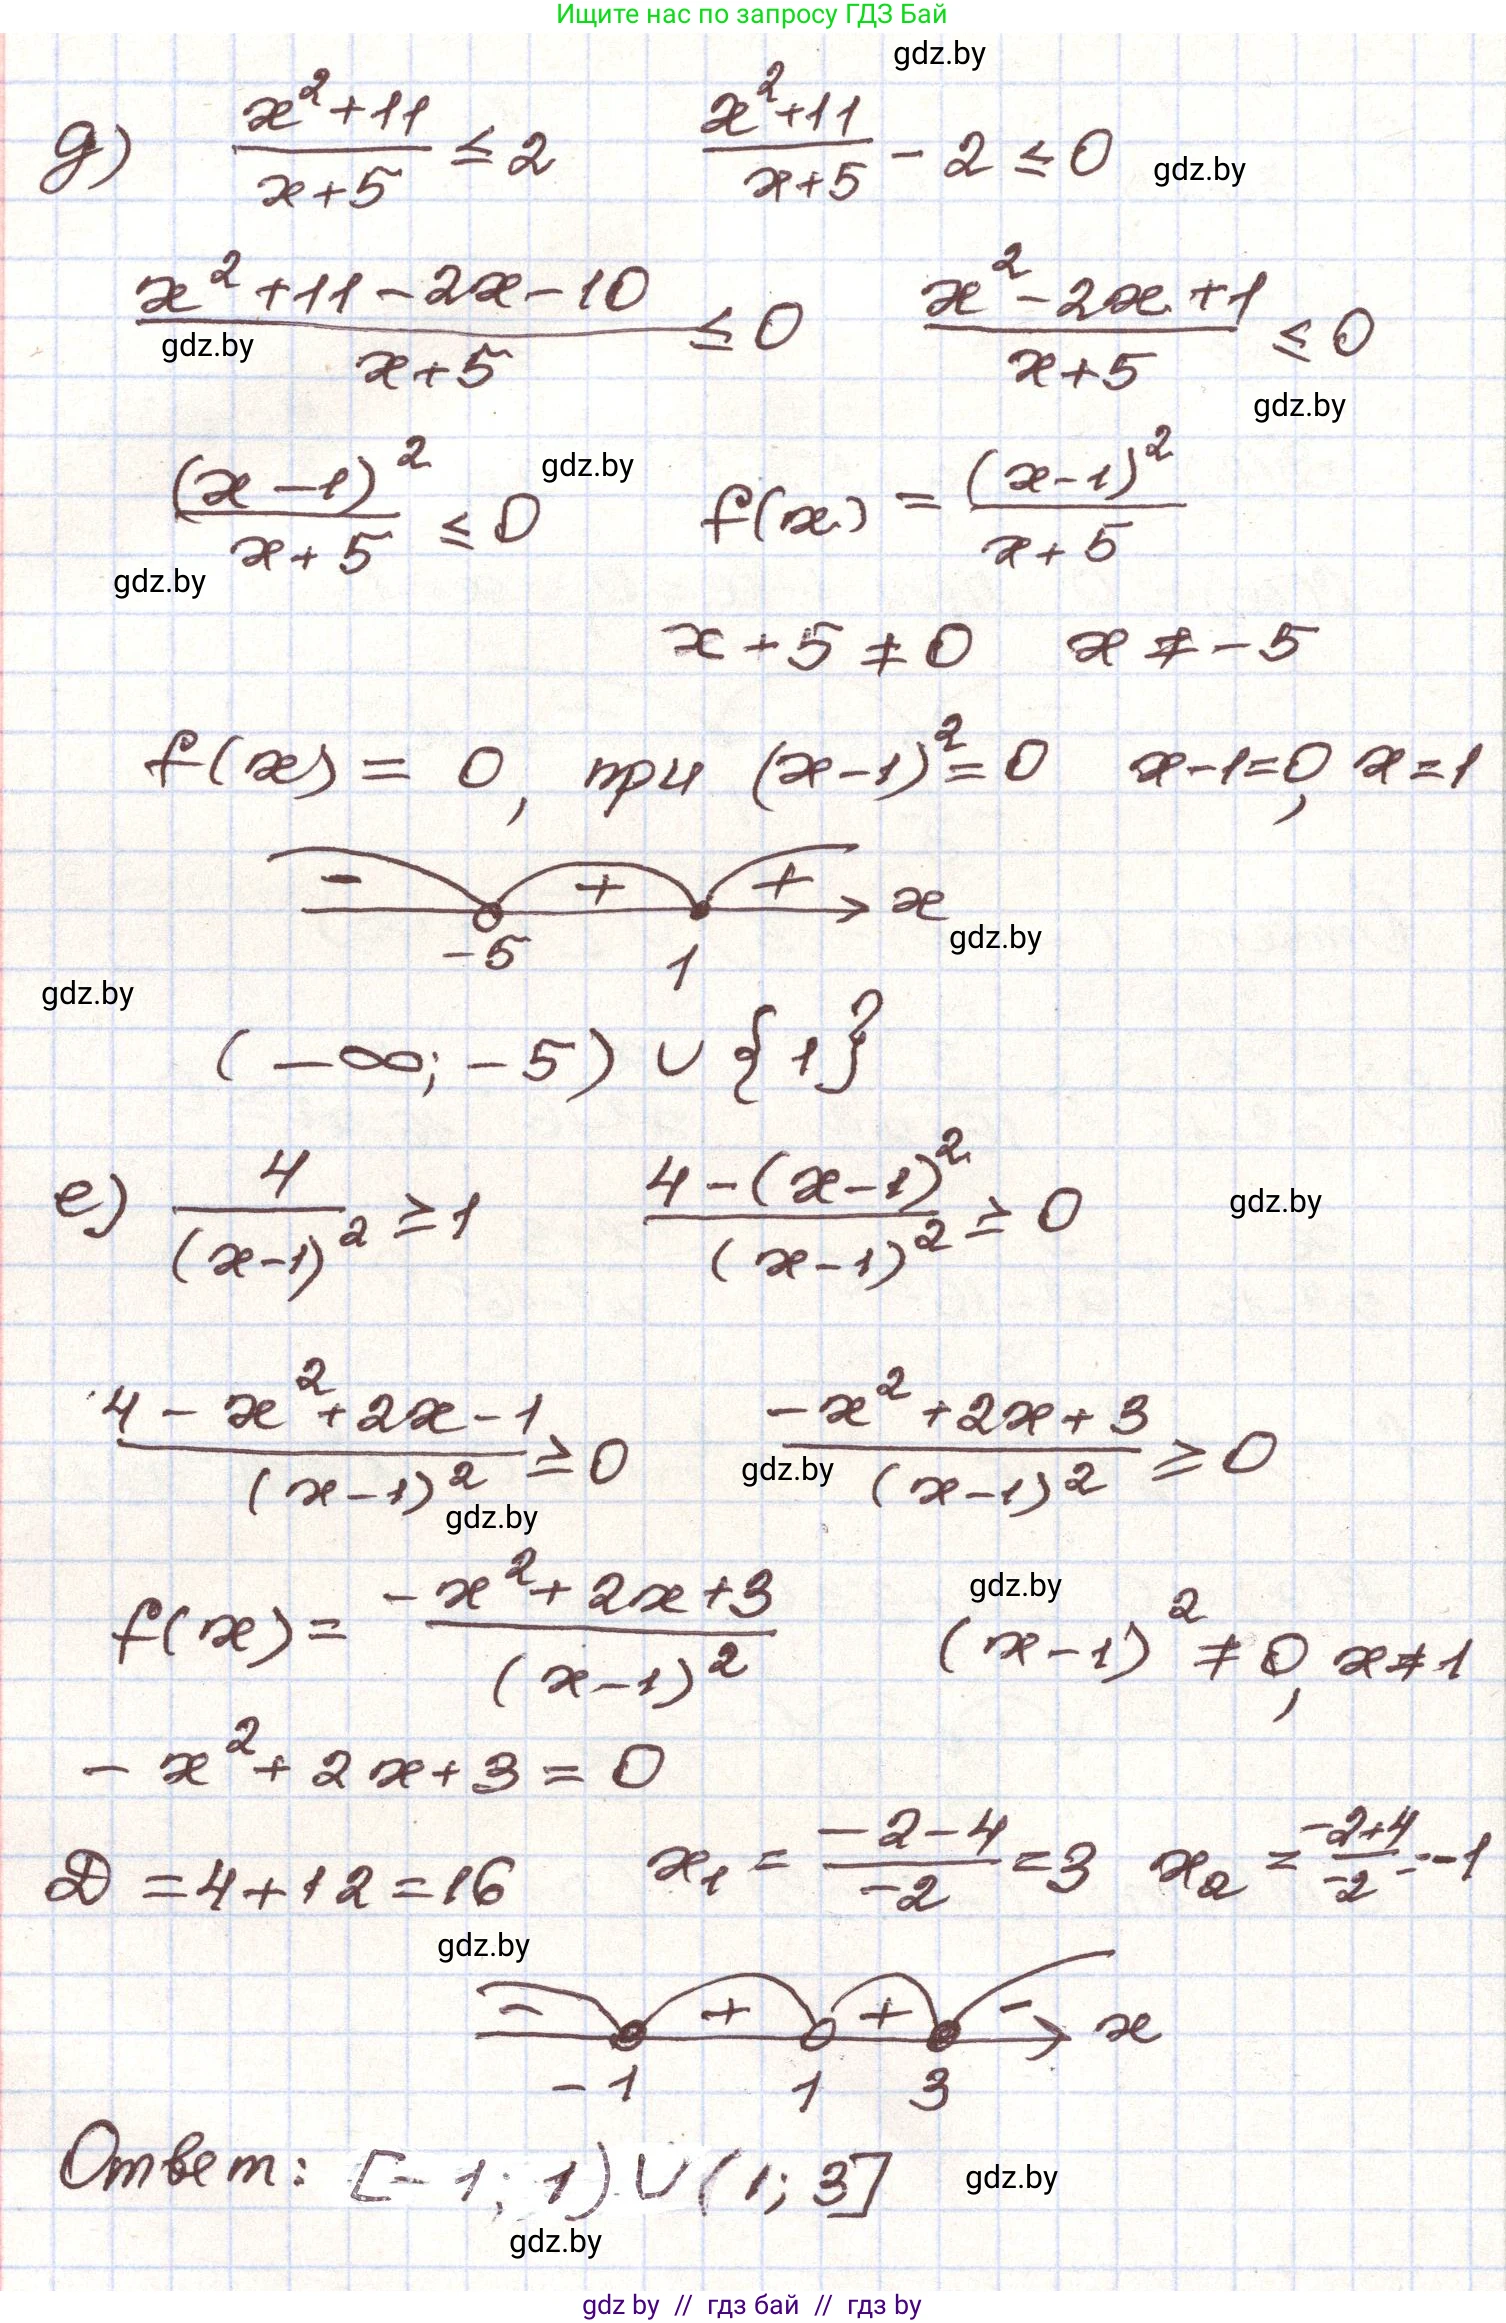 Ищите нас по запросу ГДЗ Бай
gdz.by
д) (x²+11)/(x+5) ≤ 2    (x²+11)/(x+5) - 2 ≤ 0
gdz.by
(x²+11-2x-10)/(x+5) ≤ 0    (x²-2x+1)/(x+5) ≤ 0
gdz.by
gdz.by
(x-1)²/(x+5) ≤ 0    f(x) = (x-1)²/(x+5)
gdz.by
gdz.by
x+5≠0    x≠-5
f(x) = 0, при (x-1)²=0    x-1=0, x=1
- + + x
-5 1
gdz.by
gdz.by
(-∞; -5) ∪ {1}
е) 4/(x-1)² ≥ 1    (4-(x-1)²)/(x-1)² ≥ 0
gdz.by
(4-x²+2x-1)/(x-1)² ≥ 0    (-x²+2x+3)/(x-1)² ≥ 0
gdz.by
gdz.by
f(x) = (-x²+2x+3)/(x-1)²    (x-1)² ≠ 0, x≠1
gdz.by
-x²+2x+3=0
D=4+12=16    x₁ = (-2-4)/(-2) = 3    x₂ = (-2+4)/(-2) = -1
gdz.by
- + + - x
-1 1 3
Ответ: [-1; 1) ∪ (1; 3]
gdz.by
gdz.by
gdz by // гдз бай // гдз by